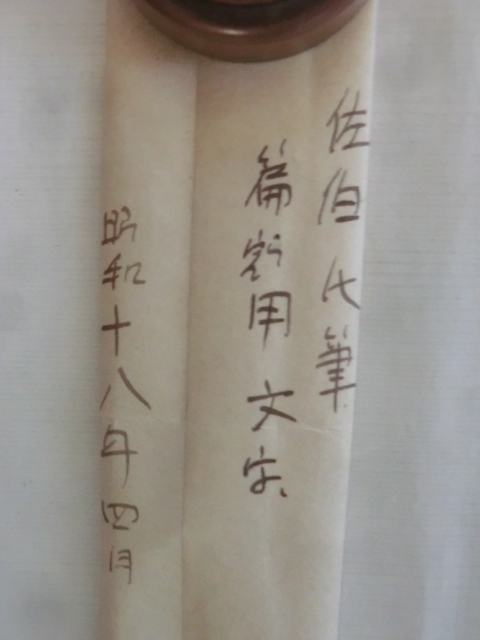 佐伯氏筆
篇額用文字
昭和十八年四月